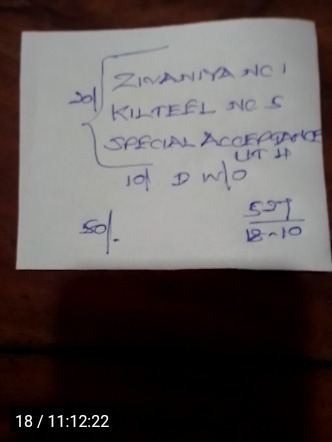 ZINANIYA NO 1
20/ KILTEEL NO 5
SPECIAL ACCEPTANCE
LIT H
10/ D W/O
50/.
527
12-10
18 / 11:12:22